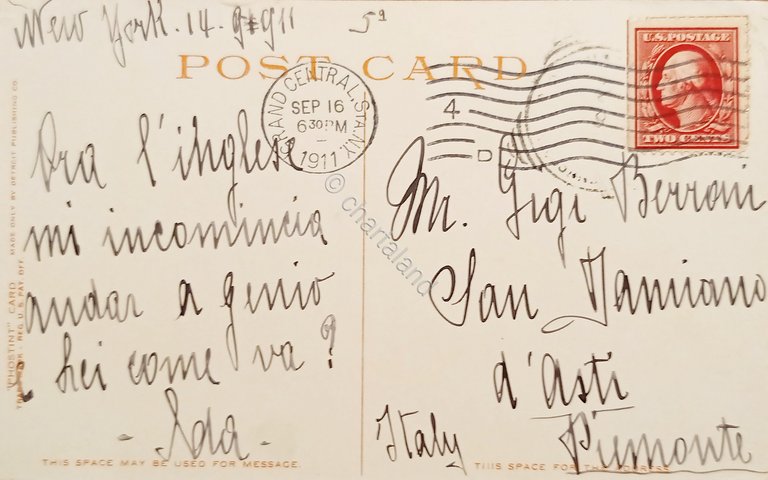 New York. 14. 9 911 5ª
POST CARD
GRAND CENTRAL STA. N.Y.
SEP 16
6 30 PM
1911
4
D
U.S. POSTAGE
TWO CENTS
Ora l'inglese
mi incomincia
andar a genio
Lei come va?
- Ada -
Mr. Gigi Berroni
San Damiano
d'Asti
Italy Piemonte
© chartaland
"PHOSTINT" CARD MADE ONLY BY DETROIT PUBLISHING CO.
TRADE MARK REG. U.S. PAT. OFF.
THIS SPACE MAY BE USED FOR MESSAGE.
THIS SPACE FOR THE ADDRESS